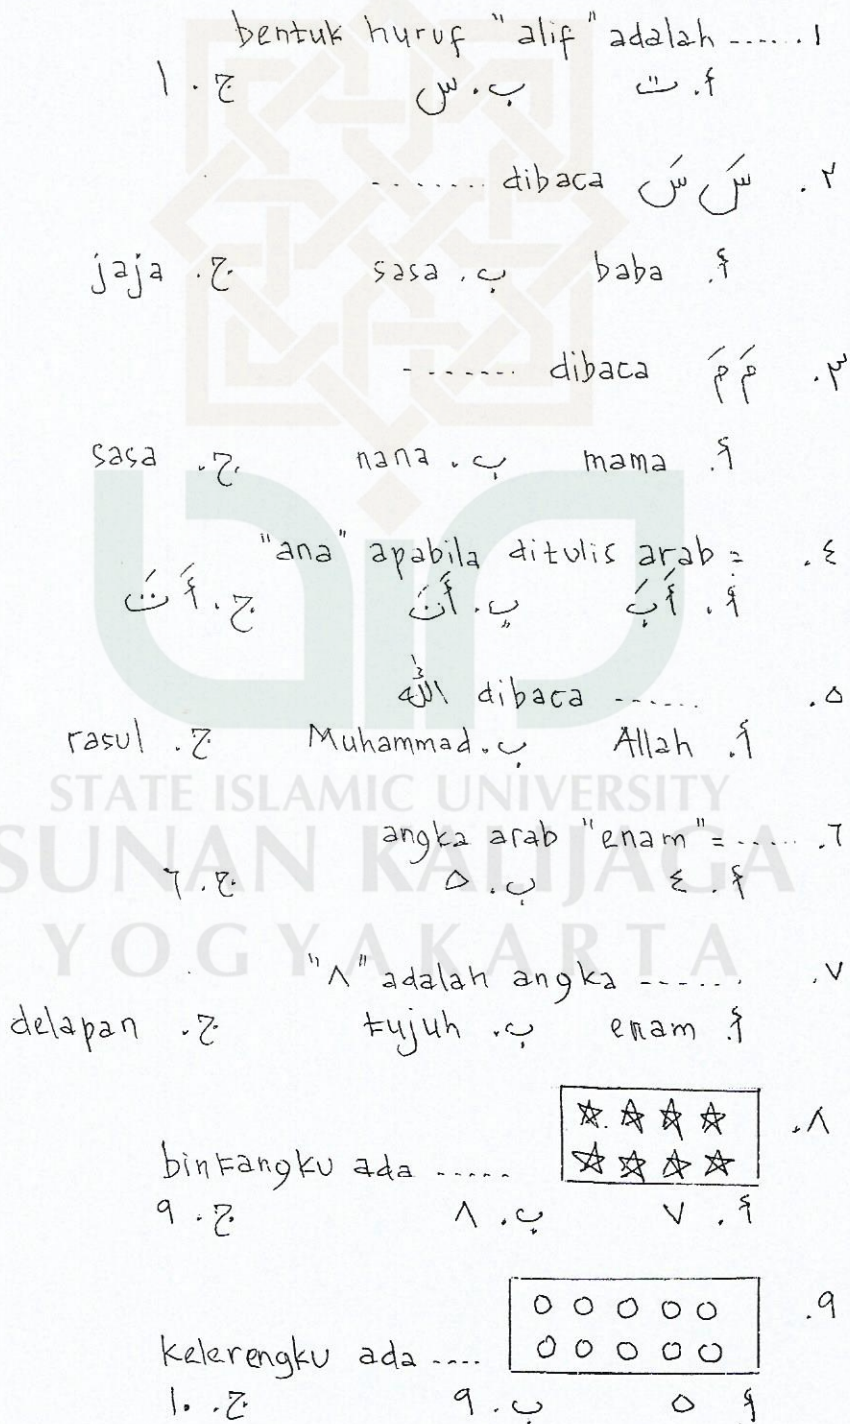 ١. bentuk huruf "alif" adalah ......
أ. ت ب. س ج. ا
٢. سَ سَ dibaca .......
أ. baba ب. sasa ج. jaja
٣. مَ مَ dibaca .......
أ. mama ب. nana ج. sasa
٤. "ana" apabila ditulis arab =
أ. أَبَ ب. أَنَ ج. أَتَ
٥. الله dibaca ......
أ. Allah ب. Muhammad ج. rasul
STATE ISLAMIC UNIVERSITY
٦. angka arab "enam" = .....
SUNAN KALIJAGA
أ. ٤ ب. ٥ ج. ٦
YOGYAKARTA
٧. "٨" adalah angka ......
أ. enam ب. tujuh ج. delapan
٨. bintangku ada .....
أ. ٧ ب. ٨ ج. ٩
٩. kelerengku ada ....
أ ٥ ب. ٩ ج. ١٠